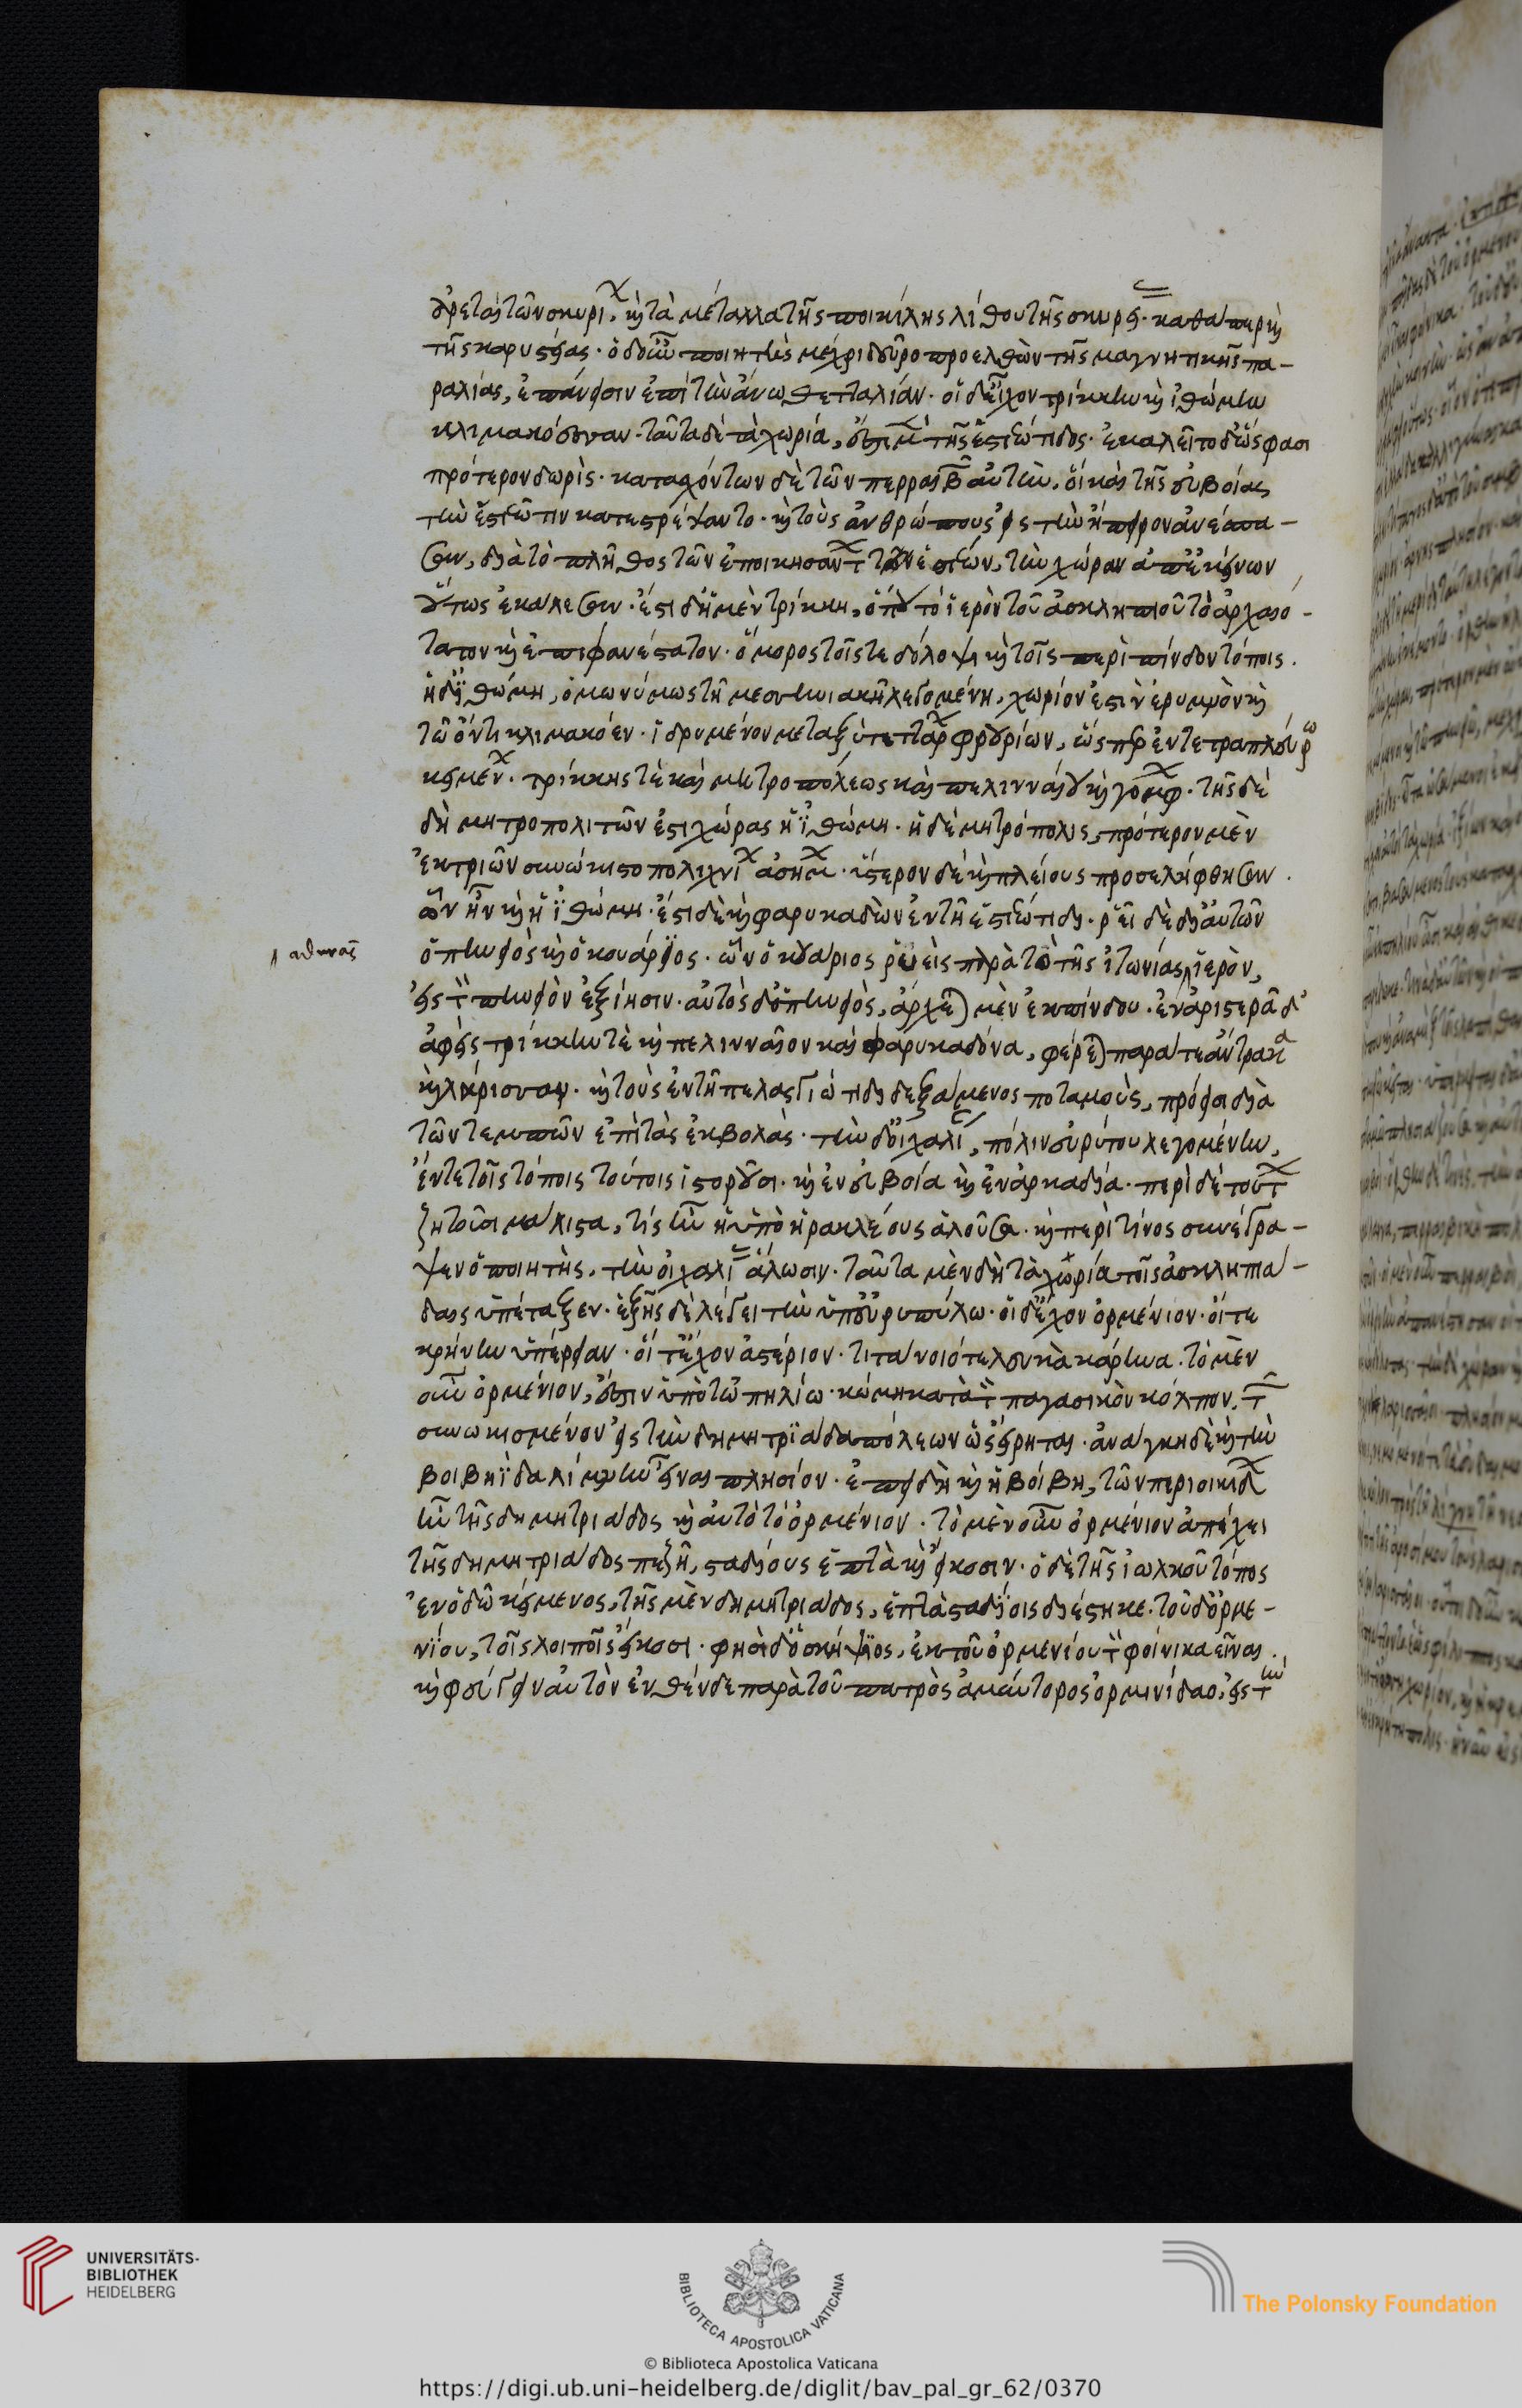 ἀρεταὶ τῶν σκυρι^χ. καὶ τὰ μέταλλα τῆς ποικίλης λίθου τῆς σκυρει· καθάπερ καὶ
τῆς καρυστείας· ὁ δοῦν ποιητὴς μέχρι δεῦρο προελθὼν τῆς μαγνητικῆς πα-
ραλίας, ἐπάνεισιν ἐπὶ τὴν ἄνω θετταλίαν· οἳ δ' εἶχον τρίκκην καὶ ἰθώμην
κλιμακόεσσαν· ταῦτα δὲ τὰ χωρία, ἔστι μὲν τῆς ἑστιώτιδος· ἐκαλεῖτο δ' ὥς φασι
πρότερον δωρὶς· κατασχόντων δὲ τῶν περραιβῶν αὐτὴν, οἳ καὶ τῆς εὐβοίας
τὴν ἑστιῶτιν κατεστρέψαντο· καὶ τοὺς ἀνθρώπους εἰς τὴν ἤπειρον ἀνέσπα-
σαν, διὰ τὸ πλῆθος τῶν ἐποικησάντ τῶν ἑστιέων, τὴν χώραν ἀπ' ἐκείνων
οὕτως ἐκάλεσαν· ἔστι δ' ἡ μὲν τρίκκη, ὅπου τὸ ἱερὸν τοῦ ἀσκληπιοῦ τὸ ἀρχαιό-
τατον καὶ ἐπιφανέστατον· ὅμορος τοῖς τε δόλοψι καὶ τοῖς περὶ πίνδον τόποις.
ἡ δ' ἰθώμη, ὁμωνύμως τῇ μεσσηνιακῇ λεγομένη, χωρίον ἐστὶν ἐρυμνὸν καὶ
τῷ ὄντι κλιμακόεν· ἱδρυμένον μεταξὺ τεττάρ φρουρίων, ὥσπερ ἐν τετραπλεύρω
κειμέν· τρίκκης τὲ καὶ μητροπόλεως καὶ πελινναίου καὶ γομφ· τῆς δὲ
δὴ μητροπολιτῶν ἐστι χώρας ἡ ἰθώμη· ἡ δὲ μητρόπολις, πρότερον μὲν
ἐκ τριῶν συνώκιστο πολιχνί ἀσήμ· ὕστερον δὲ καὶ πλείους προσελήφθησαν.
ὧν ἦν καὶ ἡ ἰθώμη· ἔστι δὲ καὶ φαρυκαδὼν ἐν τῇ ἑστιώτιδι· ῥεῖ δὲ δι' αὐτῶν
ἀθηνᾶς ὁ πηνειὸς καὶ ὁ κουάριος· ὧν ὁ κουάριος ῥυεὶς παρὰ τὸ τῆς ἰτωνίας ἱερὸν,
εἰς τ πηνειὸν ἐξίησιν· αὐτὸς δ' ὁ πηνειὸς, ἄρχεται μὲν ἐκ πίνδου· ἐν ἀριστερᾷ δ'
ἀφεὶς τρίκκην τὲ καὶ πελινναῖον καὶ φαρυκαδόνα, φέρεται παρά τε ἄτρακα
καὶ λάρισσαν· καὶ τοὺς ἐν τῇ πελασγιώτιδι δεξάμενος ποταμοὺς, πρόεισι διὰ
τῶν τεμπῶν ἐπὶ τὰς ἐκβολάς· τὴν δ' οἰχαλί, πόλιν εὐρύτου λεγομένην,
ἔν τε τοῖς τόποις τούτοις ἱστοροῦσι· καὶ ἐν εὐβοίᾳ καὶ ἐν ἀρκαδίᾳ· περὶ δὲ τούτ
ζητοῦσι μάλιστα, τίς ἦν ἡ ὑπὸ ἡρακλέους ἁλοῦσα· καὶ περὶ τίνος συνέγρα-
ψεν ὁ ποιητὴς, τὴν οἰχαλί ἅλωσιν· ταῦτα μὲν δὴ τὰ χωρία τοῖς ἀσκληπιά-
δαις ὑπέταξεν· ἑξῆς δὲ λέγει τὴν ὑπ' εὐρυπύλω· οἳ δ' ἔχον ὀρμένιον· οἵ τε
κρήνην ὑπέρειαν· οἵ τ' ἔχον ἀστέριον· τιτάνοιό τε λευκὰ κάρηνα· τὸ μὲν
οὖν ὀρμένιον, ἔστιν ὑπὸ τῷ πηλίω· κώμη κατὰ τ παγασικὸν κόλπον, τ
συνωκισμένον εἰς τὴν δημητριάδα πόλεων ὡς εἴρηται· ἀνάγκη δὲ καὶ τὴν
βοιβηΐδα λίμνην εἶναι πλησίον· ἐπεὶ δὴ καὶ ἡ βοίβη, τῶν περιοικίδ
ἦν τῆς δημητριάδος καὶ αὐτὸ τὸ ὀρμένιον· τὸ μὲν οὖν ὀρμένιον ἀπέχει
τῆς δημητριάδος πεζῇ, σταδίους ἑπτὰ καὶ εἴκοσιν· ὁ δὲ τῆς ἰωλκοῦ τόπος
ἐν ὁδῷ κείμενος, τῆς μὲν δημητριάδος, ἑπτὰ σταδίοις διέστηκε· τοῦ δ' ὀρμε-
νίου, τοῖς λοιποῖς εἴκοσι· φησὶ δ' ὁ σκήψιος, ἐκ τοῦ ὀρμενίου τ φοίνικα εἶναι.
καὶ φεύγειν αὐτὸν ἐνθένδε παρὰ τοῦ πατρὸς ἀμύντορος ὀρμενίδαο, εἰς τὴν
UNIVERSITÄTS-
BIBLIOTHEK
HEIDELBERG
BIBLIOTECA APOSTOLICA VATICANA
The Polonsky Foundation
© Biblioteca Apostolica Vaticana
https://digi.ub.uni-heidelberg.de/diglit/bav_pal_gr_62/0370